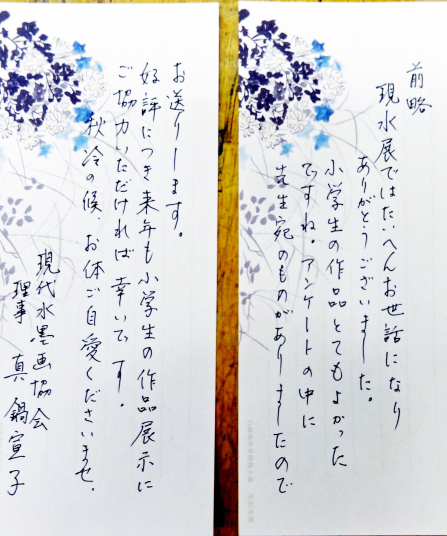 前略
現水展ではたいへんお世話になり
ありがとうございました。
小学生の作品とてもよかった
ですね。アンケートの中に
先生宛のものがありましたので
お送りします。
好評につき来年も小学生の作品展示に
ご協力いただければ幸いです。
秋冷の候、お体ご自愛くださいませ。
現代水墨画協会
理事 真鍋宣子